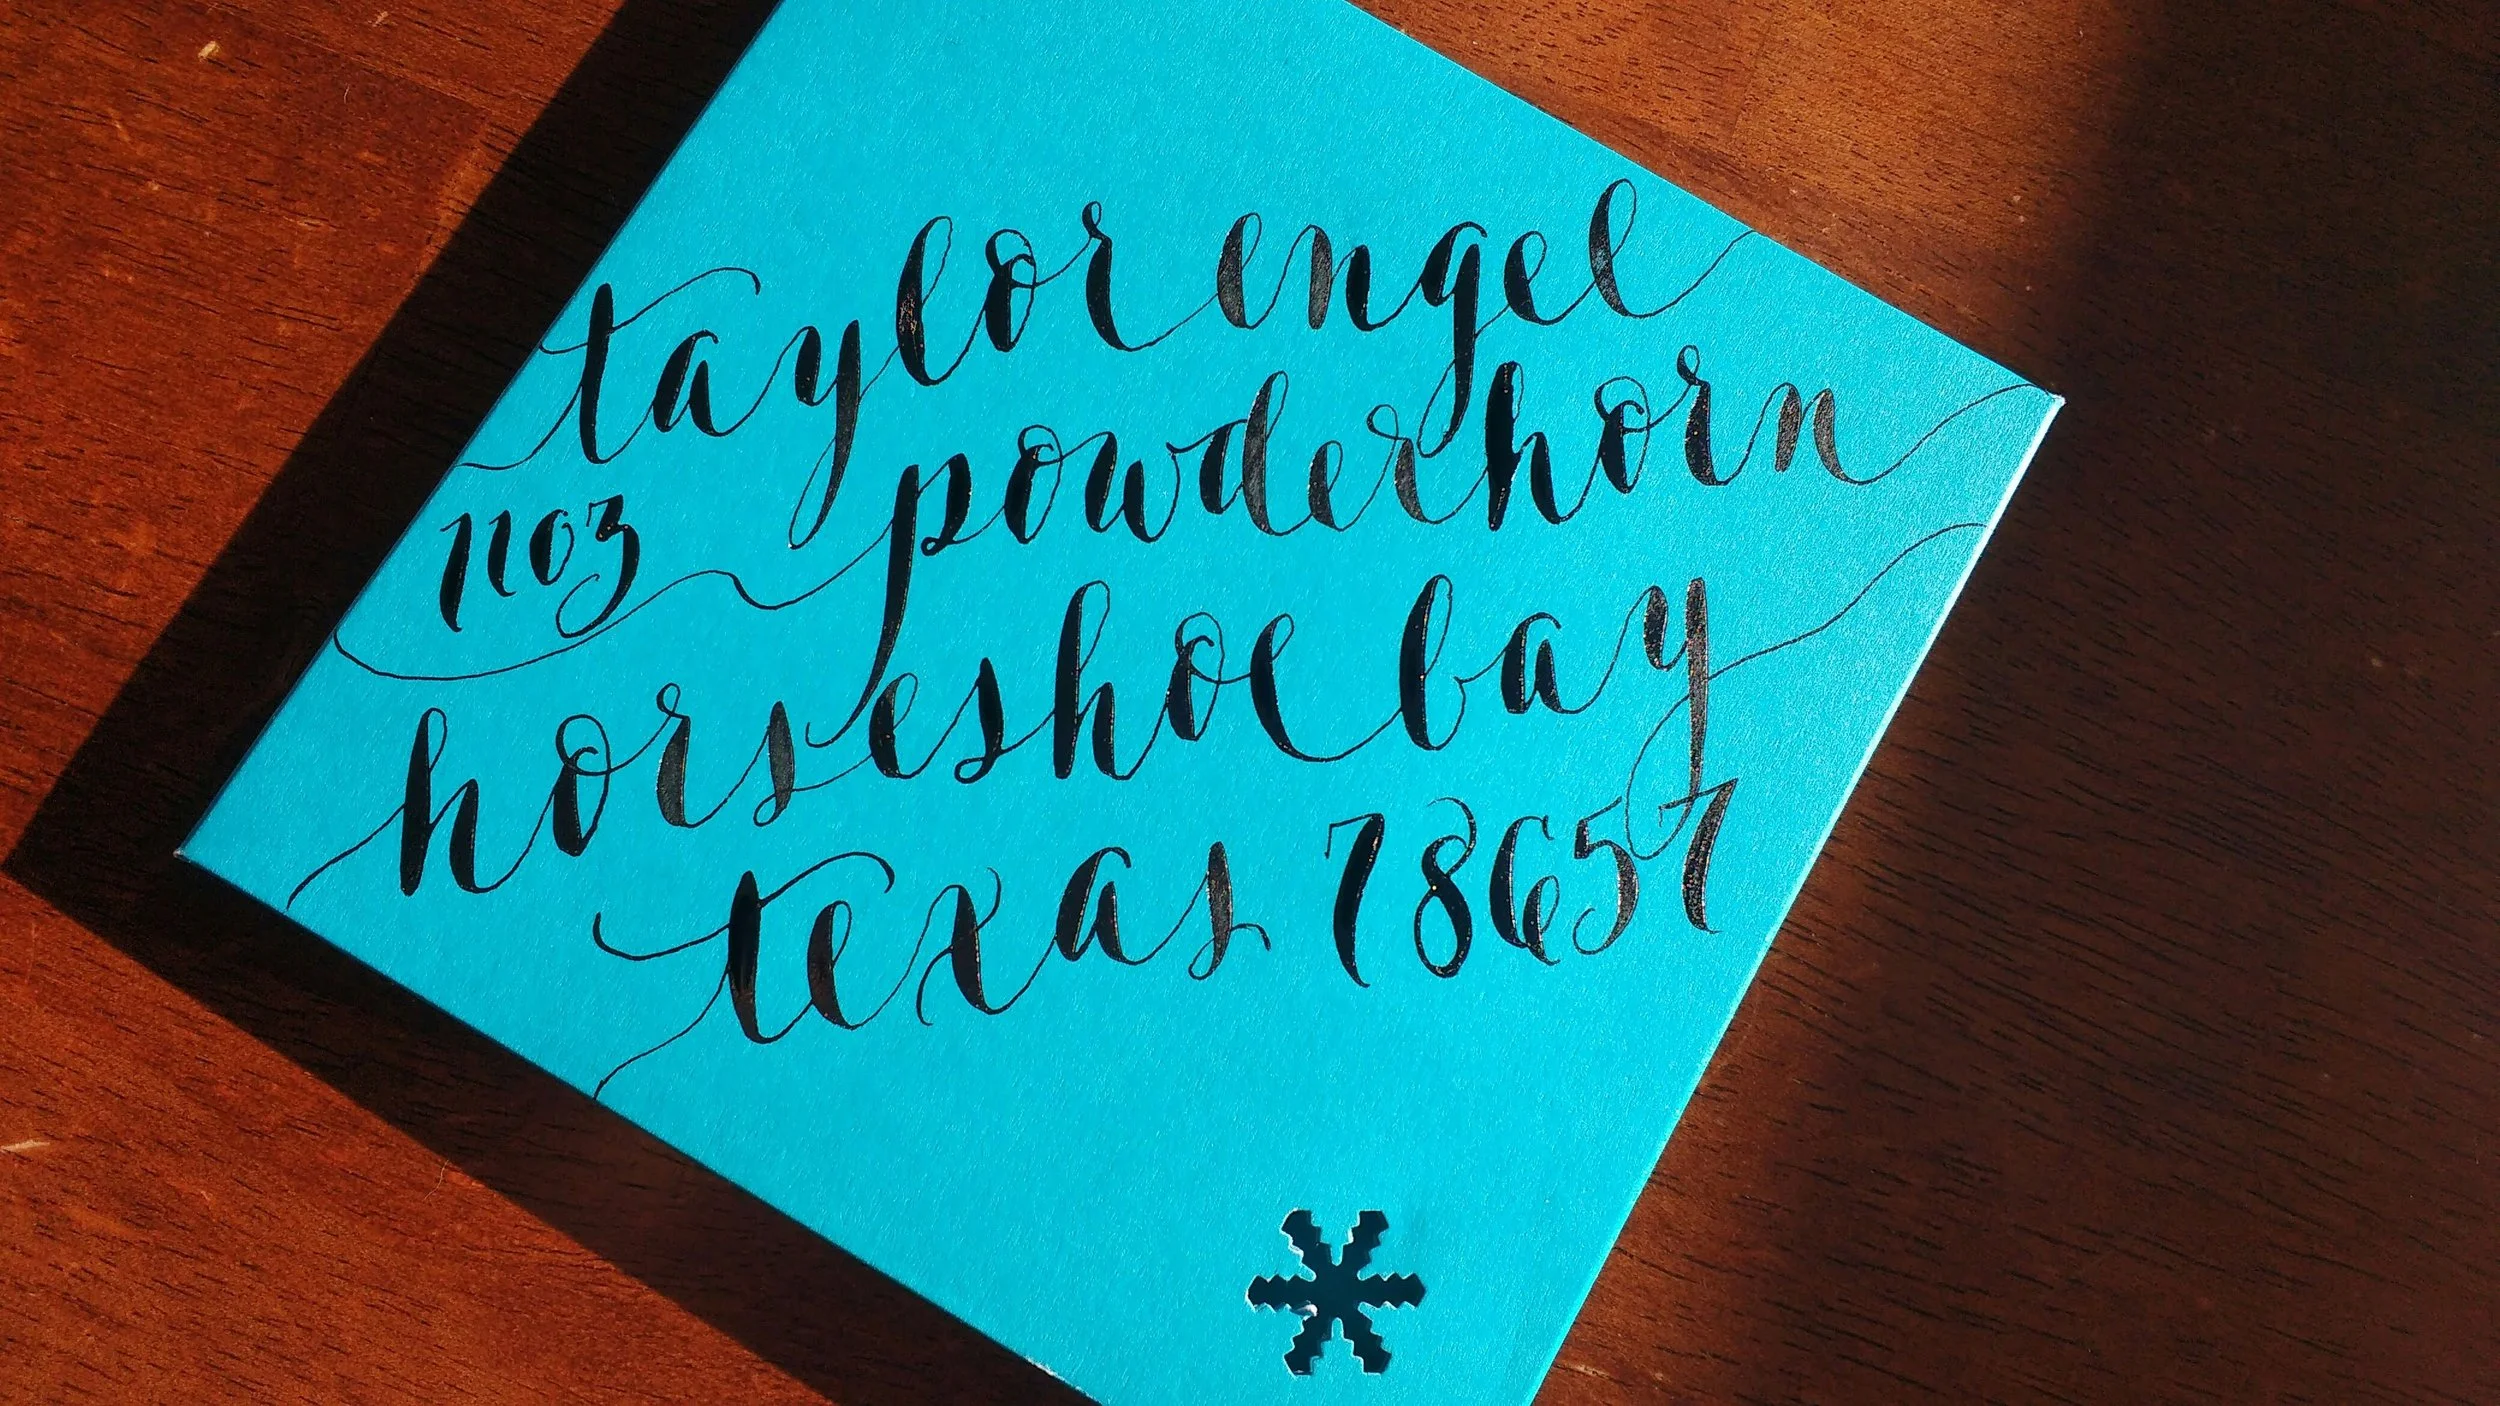 taylor engel
1103 powderhorn
horseshoe bay
texas 78657